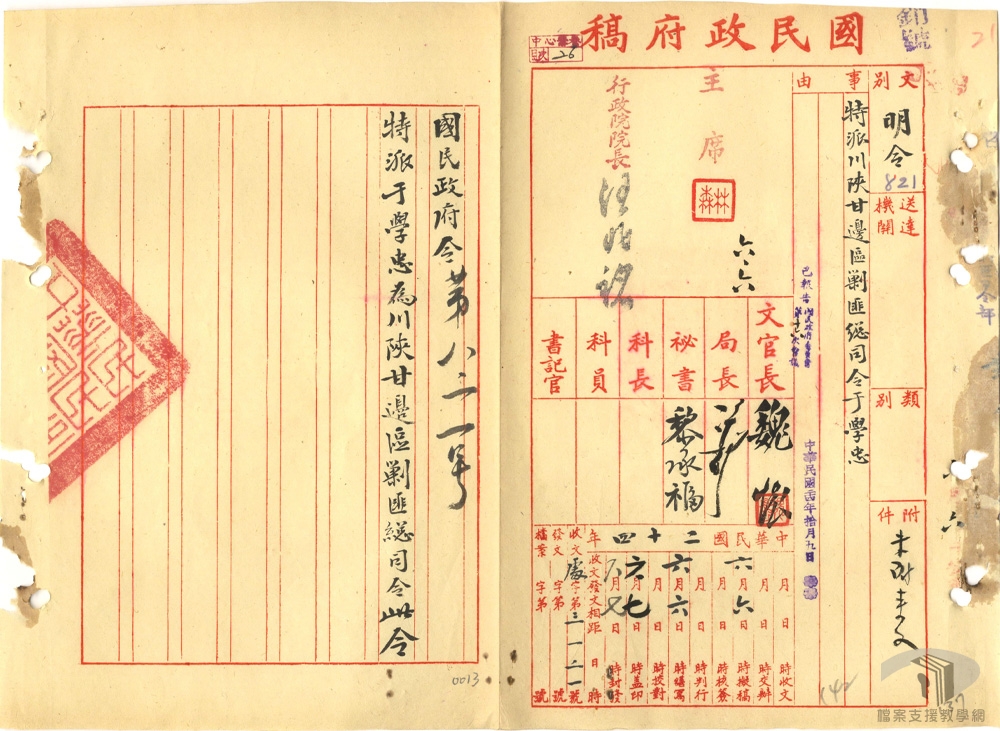 國民政府稿
文別
明令
821
送達機關
類別
附件
事由
特派川陝甘邊區剿匪總司令于學忠
主席
林森
六、六
行政院院長
汪兆銘
文官長
魏懷
局長
祕書
黎承福
科長
科員
書記官
中華民國二十四年
月 日 時收文
月 日 時交辦
六月六日 時擬稿
月 日 時核簽
月 日 時判行
六月六日 時繕寫
月 日 時校對
六月七日 時蓋印
六月七日 時封發
收文發文相距 日 時
收文處字第三一一二一號
發文 字第 號
檔案 字第 號
中華民國 年拾月九日
26
國民政府令第八二一號
特派于學忠為川陝甘邊區剿匪總司令此令
0013
142
檔案支援教學網